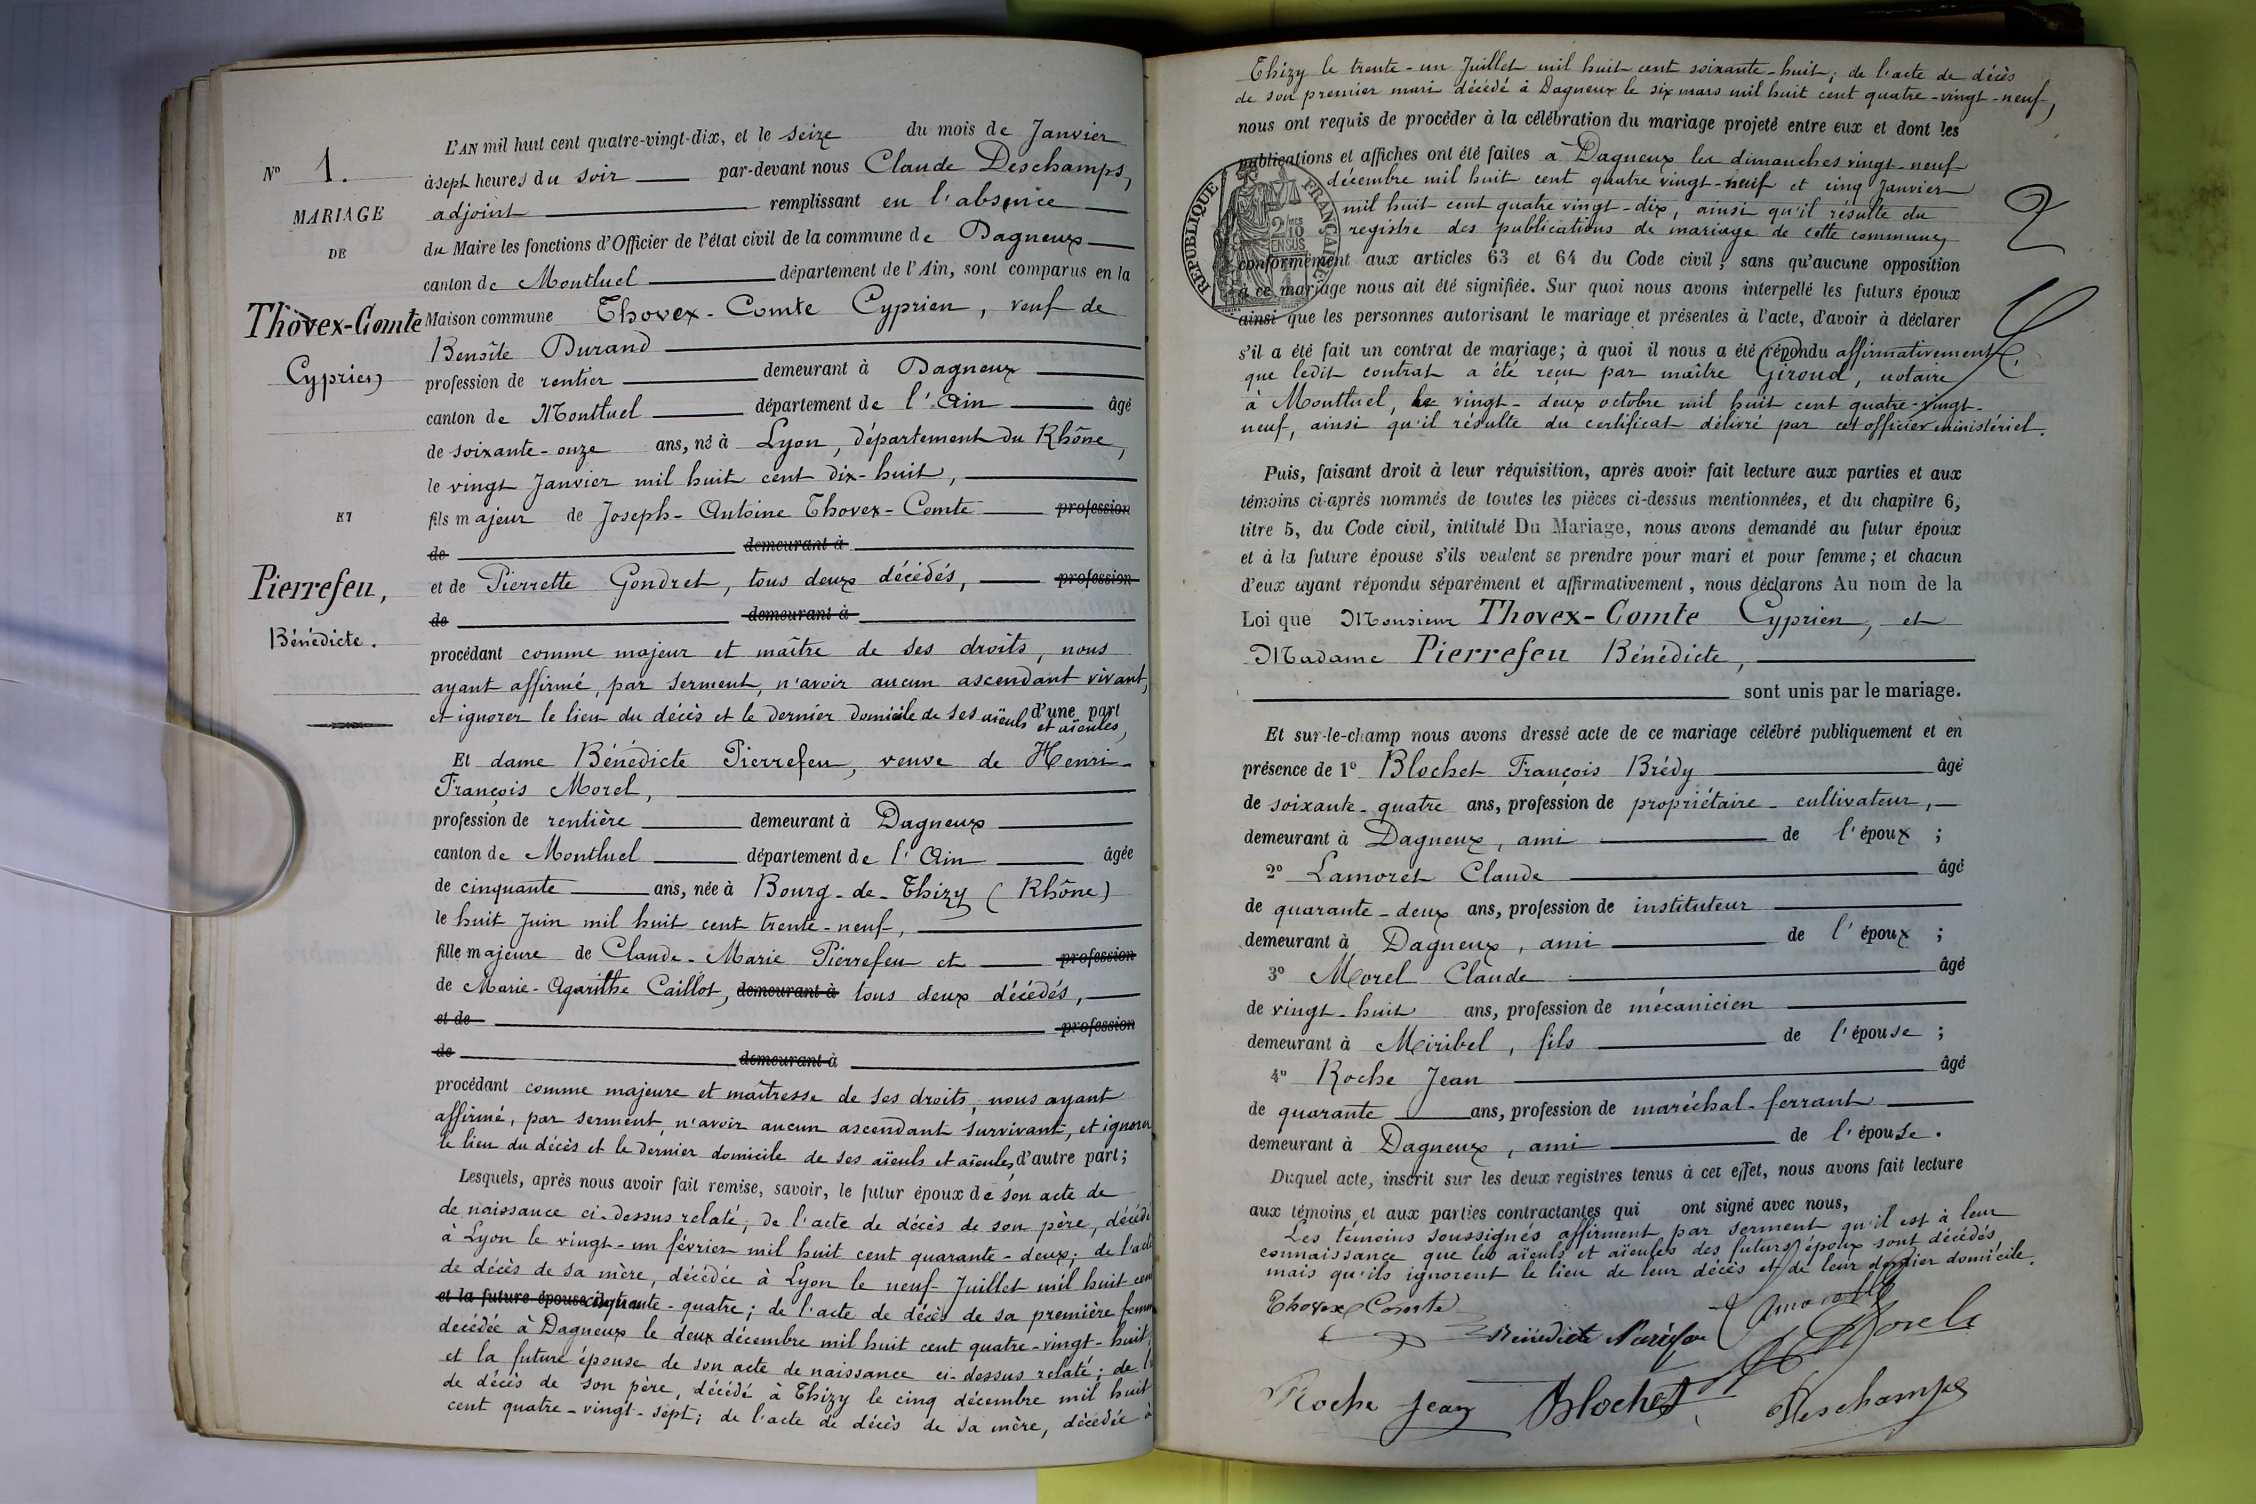 L'AN mil huit cent quatre-vingt-dix, et le seize du mois de Janvier
à sept heures du soir par-devant nous Claude Deschamps,
adjoint remplissant en l'absence
du Maire les fonctions d'Officier de l'état civil de la commune de Dagneux
canton de Montluel département de l'Ain, sont comparus en la
Maison commune Thovex-Comte Cyprien, veuf de
Benoîte Durand
profession de rentier demeurant à Dagneux
canton de Montluel département de l'Ain âgé
de soixante-onze ans, né à Lyon, département du Rhône,
le vingt Janvier mil huit cent dix-huit,
fils majeur de Joseph-Antoine Thovex-Comte profession
de demeurant à
et de Pierrette Gondret, tous deux décédés, profession
de demeurant à
procédant comme majeur et maître de ses droits, nous
ayant affirmé, par serment, n'avoir aucun ascendant vivant,
et ignorer le lieu du décès et le dernier domicile de ses aïeuls et aïeules, d'une part
Et dame Bénédicte Pierrefeu, veuve de Henri-
François Morel,
profession de rentière demeurant à Dagneux
canton de Montluel département de l'Ain âgée
de cinquante ans, née à Bourg-de-Thizy (Rhône)
le huit Juin mil huit cent trente-neuf,
fille majeure de Claude-Marie Pierrefeu et profession
de Marie-Agarithe Caillot, demeurant à tous deux décédés,
et de profession
de demeurant à
procédant comme majeure et maîtresse de ses droits, nous ayant
affirmé, par serment, n'avoir aucun ascendant survivant, et ignorer
le lieu du décès et le dernier domicile de ses aïeuls et aïeules, d'autre part;
Lesquels, après nous avoir fait remise, savoir, le futur époux de son acte de
de naissance ci-dessus relaté; de l'acte de décès de son père, décédé
à Lyon le vingt-un février mil huit cent quarante-deux; de l'acte
de décès de sa mère, décédée à Lyon le neuf Juillet mil huit cent
et la future épouse cinquante-quatre; de l'acte de décès de sa première femme
décédée à Dagneux le deux décembre mil huit cent quatre-vingt-huit;
et la future épouse de son acte de naissance ci-dessus relaté; de l'
de décès de son père, décédé à Thizy le cinq décembre mil huit
cent quatre-vingt-sept; de l'acte de décès de sa mère, décédée à
N° 1.
MARIAGE
DE
Thovex-Comte
Cyprien
ET
Pierrefeu,
Bénédicte.
Thizy le trente-un Juillet mil huit cent soixante-huit; de l'acte de décès
de son premier mari décédé à Dagneux le six mars mil huit cent quatre-vingt-neuf,
nous ont requis de procéder à la célébration du mariage projeté entre eux et dont les
publications et affiches ont été faites à Dagneux les dimanches vingt-neuf
décembre mil huit cent quatre vingt-neuf et cinq Janvier
mil huit cent quatre vingt-dix, ainsi qu'il résulte du
registre des publications de mariage de cette commune,
conformément aux articles 63 et 64 du Code civil; sans qu'aucune opposition
à ce mariage nous ait été signifiée. Sur quoi nous avons interpellé les futurs époux
ainsi que les personnes autorisant le mariage et présentes à l'acte, d'avoir à déclarer
s'il a été fait un contrat de mariage; à quoi il nous a été répondu affirmativement,
que ledit contrat a été reçu par maître Giroud, notaire
à Montluel, le vingt-deux octobre mil huit cent quatre-vingt-
neuf, ainsi qu'il résulte du certificat délivré par cet officier ministériel.
Puis, faisant droit à leur réquisition, après avoir fait lecture aux parties et aux
témoins ci-après nommés de toutes les pièces ci-dessus mentionnées, et du chapitre 6,
titre 5, du Code civil, intitulé Du Mariage, nous avons demandé au futur époux
et à la future épouse s'ils veulent se prendre pour mari et pour femme; et chacun
d'eux ayant répondu séparément et affirmativement, nous déclarons Au nom de la
Loi que Monsieur Thovex-Comte Cyprien, et
Madame Pierrefeu Bénédicte,
sont unis par le mariage.
Et sur-le-champ nous avons dressé acte de ce mariage célébré publiquement et en
présence de 1° Blochet François Brédy âgé
de soixante-quatre ans, profession de propriétaire-cultivateur,
demeurant à Dagneux, ami de l'époux;
2° Lamoret Claude âgé
de quarante-deux ans, profession de instituteur
demeurant à Dagneux, ami de l'époux;
3° Morel Claude âgé
de vingt-huit ans, profession de mécanicien
demeurant à Miribel, fils de l'épouse;
4° Roche Jean âgé
de quarante ans, profession de maréchal-ferrant
demeurant à Dagneux, ami de l'épouse.
Duquel acte, inscrit sur les deux registres tenus à cet effet, nous avons fait lecture
aux témoins et aux parties contractantes qui ont signé avec nous,
Les témoins soussignés affirment par serment qu'il est à leur
connaissance que les aïeuls et aïeules des futurs époux sont décédés,
mais qu'ils ignorent le lieu de leur décès et de leur dernier domicile.
Thovex Comte
Bénédicte
Morel
Roche Jean
Blochet
Deschamps
RÉPUBLIQUE FRANÇAISE
2/10 EN SUS
2